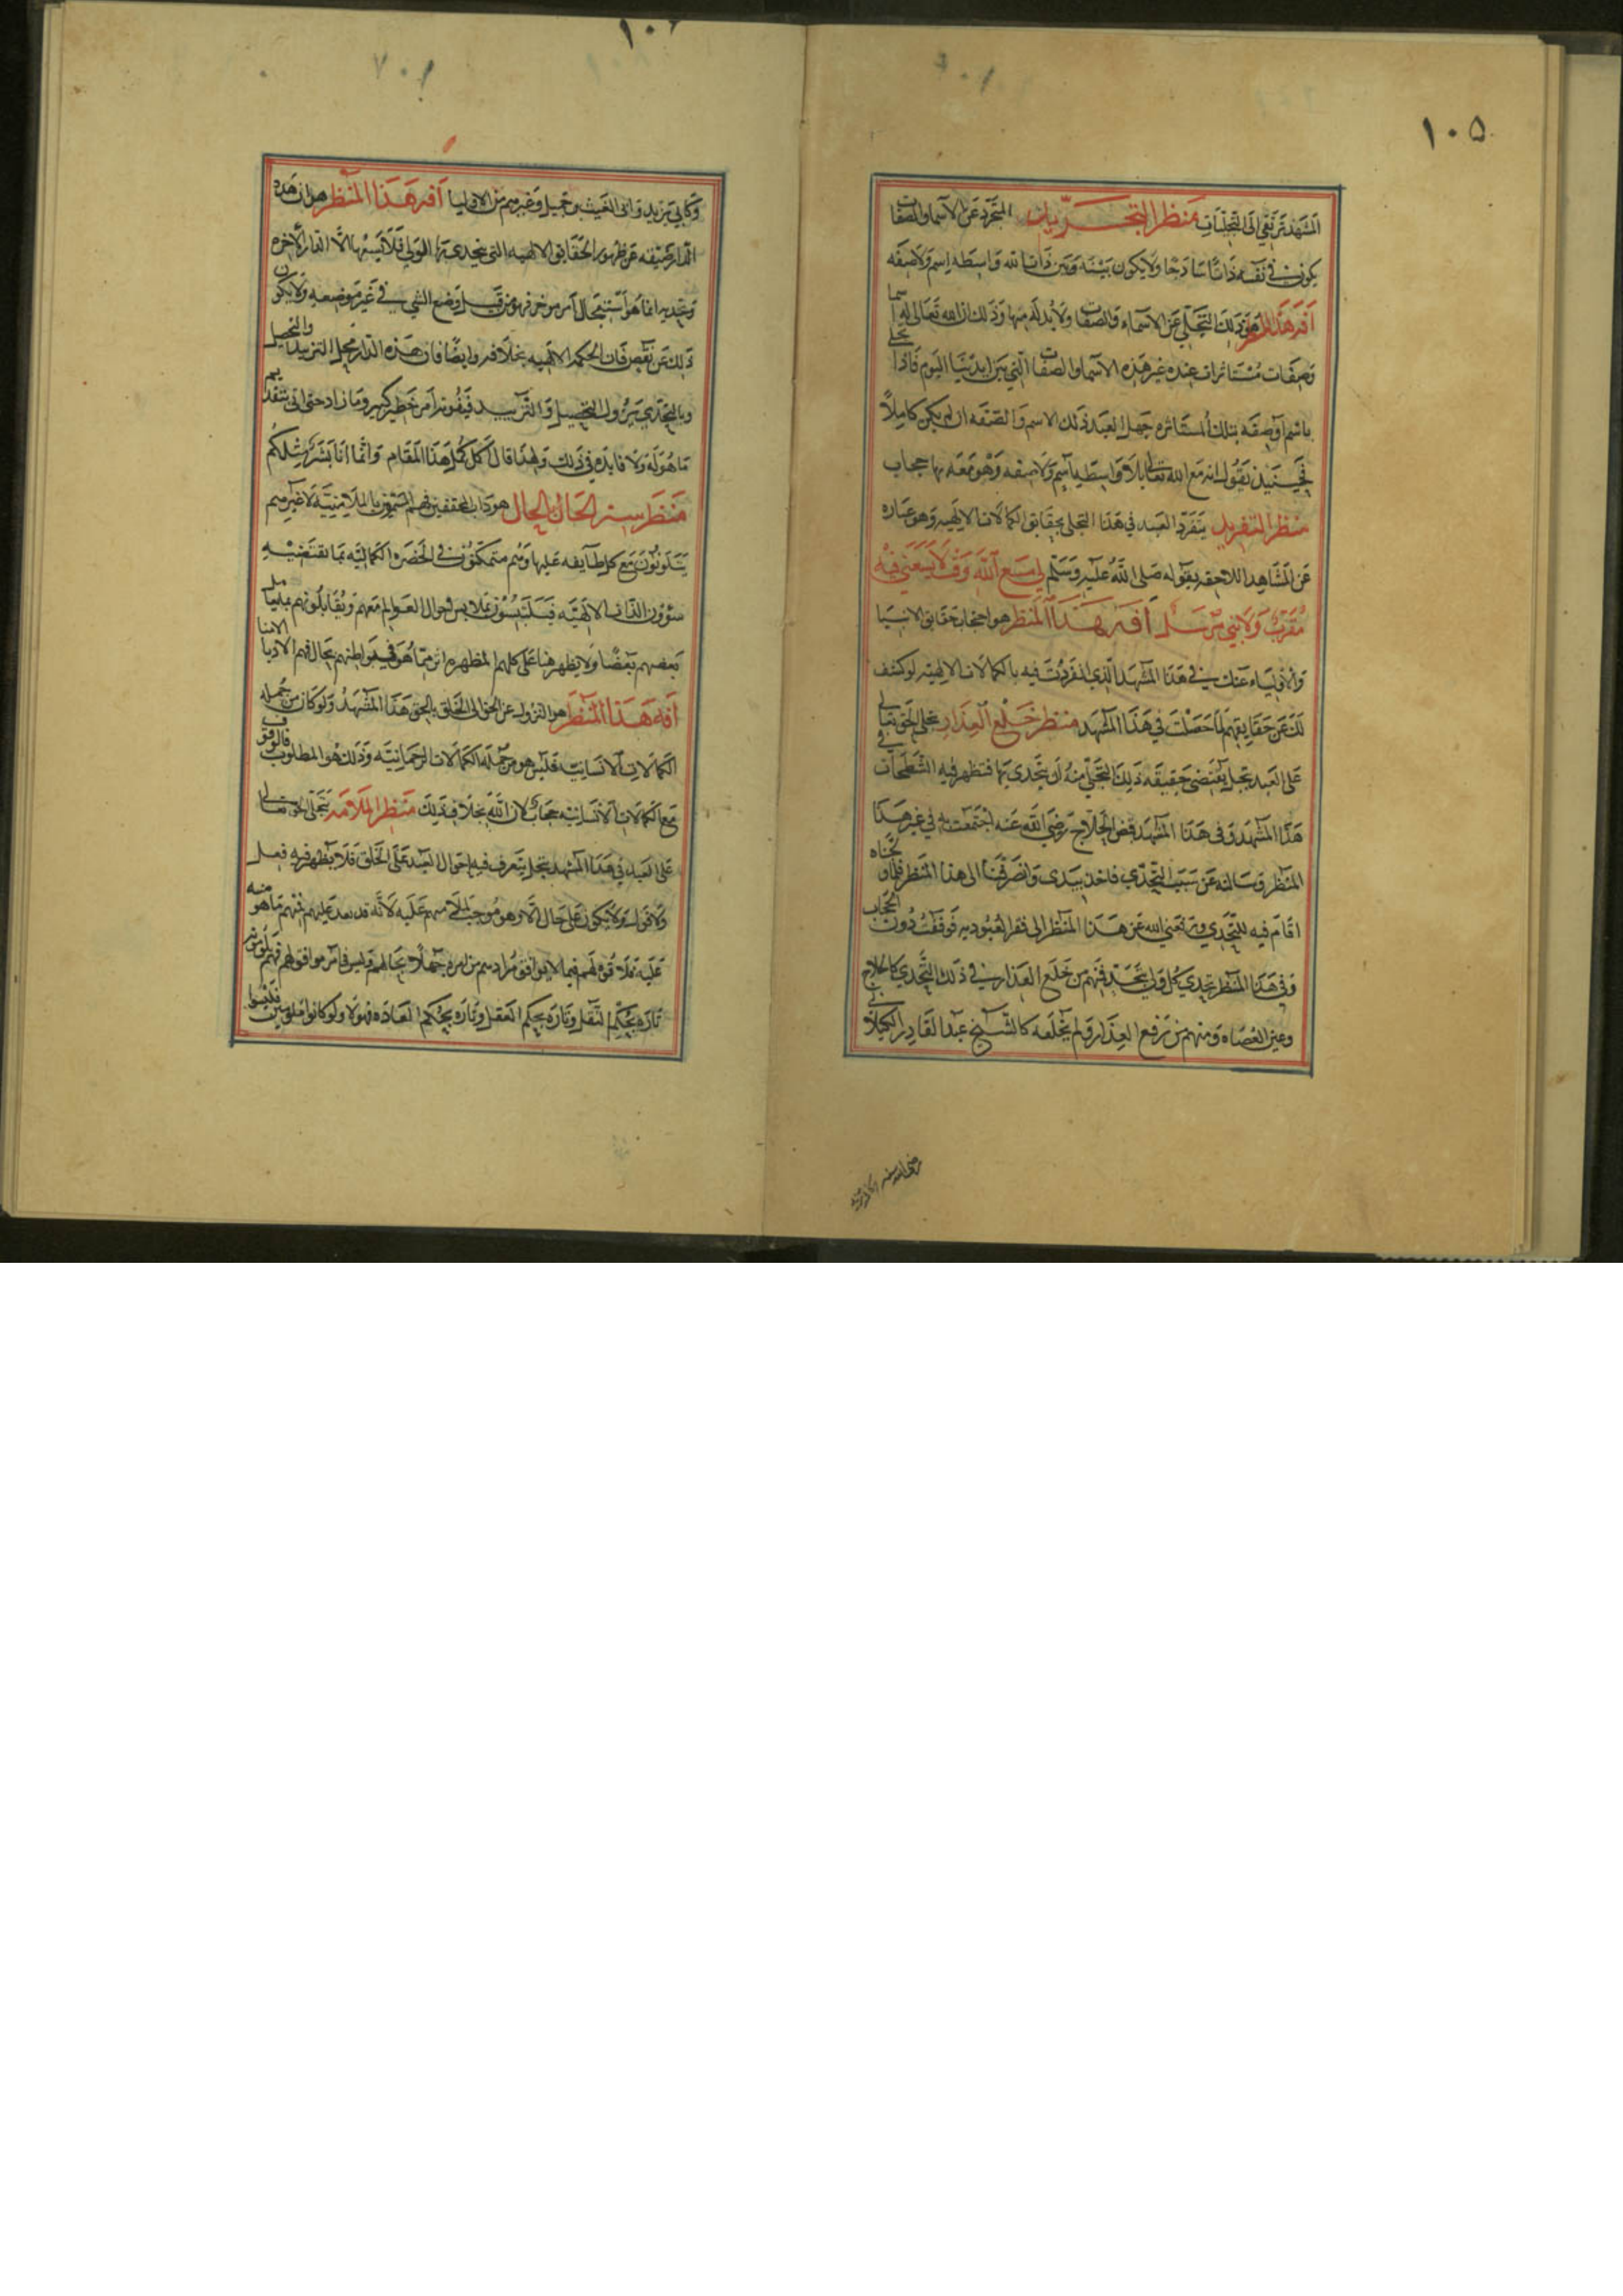 ١٠٥
المشهد ترتقي الى التجليات منظر التجريد التجرد عن الاسماء والصفات
يكون في نفسه ذاتا ساذجا ولا يكون بينه وبين ذات الله واسطة اسم ولا صفة
افة هذا المنظر هو ذلك التجلي عن الاسماء والصفات ولا بد له منها وذلك ان الله تعالى له اسما
وصفات مستاثرات عنده غير هذه الاسما والصفات التي بين ايدينا اليوم فاذا تجلى
باسم او صفة بتلك المستاثره جهل العبد ذلك الاسم والصفه ان لم يكن كاملا
فحينيذ يقول انه مع الله تعالى بلا واسطة اسم ولا صفه وهو معه بها حجاب
منظر التفريد يتفرد العبد في هذا التجلى بحقايق الكمالات الالهيه وهو عباره
عن المشاهد اللاحقه بقوله صلى الله عليه وسلم لي مع الله وقت لا يسعني فيه
مقرب ولا نبي مرسل افة هذا المنظر هو احتجاب حقايق الانبيا
والاولياء عنك في هذا المشهد الذي انفردت فيه بالكمالات الالهيه لو كشف
لك عن حقايقهم لما حصلت في هذا المشهد منظر خلع العذار تجلى الحق تعالى
على العبد تجل يقتضى حقيقه ذلك التجلي منه ان يتحدى بها فتظهر فيه الشطحات في
هذا المشهد وفى هذا المشهد قضى الحلاج رضي الله عنه اجتمعت به في غير هذا
المنظر وسالته عن سبب التحدي فاخذ بيدى وانصرفنا الى هذا المنظر فلما
اقام فيه للتحدي ورفعني الله عن هذا المنظر الى فقر العبوديه فوقفت دون الحجاب
وفى هذا المنظر يتحدي كل ولي فمنهم من خلع العذار في ذلك التحدي كالحلاج
وعين القضاه ومنهم من رفع العذار ولم يخلعه كالشيخ عبد القادر الكيلاني
وكابي يزيد وابى الغيث بن جميل وغيرهم من الاوليا افة هذا المنظر هو ان هذه
الدار ضيقه عن ظهور الحقايق الالهيه التى يتحدى بها الولي فلا تسعها الا الدار الاخره
وتحديه انما هو استعجال امر موخر فهو من قبيل وضع الشي في غير موضعه ولا يكون
ذلك عن نقص فان الحكمه الالهيه بخلافه وايضا فان هذه الدار محل التزييد والتحصيل
وبالتحدي يزول التحصيل والتزييد فيفوته امر خطير كبير وما زاد حتى اتى
ما هو له ولا فايده في ذلك ولهذا قال اكمل كمل هذا المقام وانما انا بشر مثلكم
منظر ستر الحال بالحال هو داب المحققين فهم المسمون بالملامتية لا غيرهم
يتلونون مع كل طايفه عليها وهم متمكنون في الحضره الكماليه بما تقتضيه
شوون الذات الالهيه فيتلبسون بملابس احوال العوالم معهم ويقابلونهم
بعضهم بعضا ولا يظهر هنا على كلهم لمظهره اثر مما هو في بواطنهم بحال فهم الادبا الامنا
افة هذا المنظر هو النزول عن الحق الى الخلق بالحق هذا المشهد ولو كان من جمله
الكمالات الانسانيه فليس هو من جمله الكمالات الرحمانيه وذلك هو المطلوب فالوقوف
مع الكمالات الانسانيه حجاب لان الله بخلاف ذلك منظر الملامه يتجلى الحق تعالى
على العبد في هذا المشهد تجل يتعرف فيه احوال العبد على الخلق فلا يظهر فيه فعل
ولا قول ولا يكون على حال الا وهو موجب لملامهم عليه لانه قد بعد عليهم فهم ما هو منه
عليه فلا قوه لهم فيما لا يوافق مرادهم من امره جهلا بحالهم وليس في امر موافق لهم فهم يلومونه
تاره بحكم النقل وتاره بحكم العقل وتاره بحكم العاده فهولا ولو كانوا ملومين